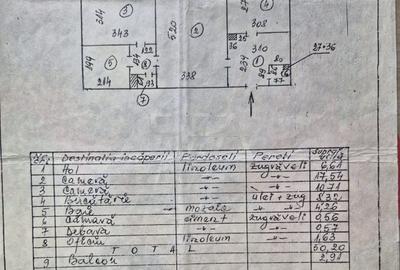 3
343
314
22
520
2
4
308
25
36
310
27*36
1
234
80
77
5
194
214
8
7
338
Destinatia incăperii Pardoseli Pereti
1 Hol linoleum zugrăveli 6,61
2 Cameră -"- -"- 17,54
3 Cameră -"- -"- 10,71
4 Bucătărie -"- ulei + zug
5 Baie mozaic
6 Cămară ciment zugrăveli 0,56
7 Debara -"- -"- 0,57
8 Oficiu linoleum -"- 1,63
T O T A L 50,20
9 Balcon 2,91